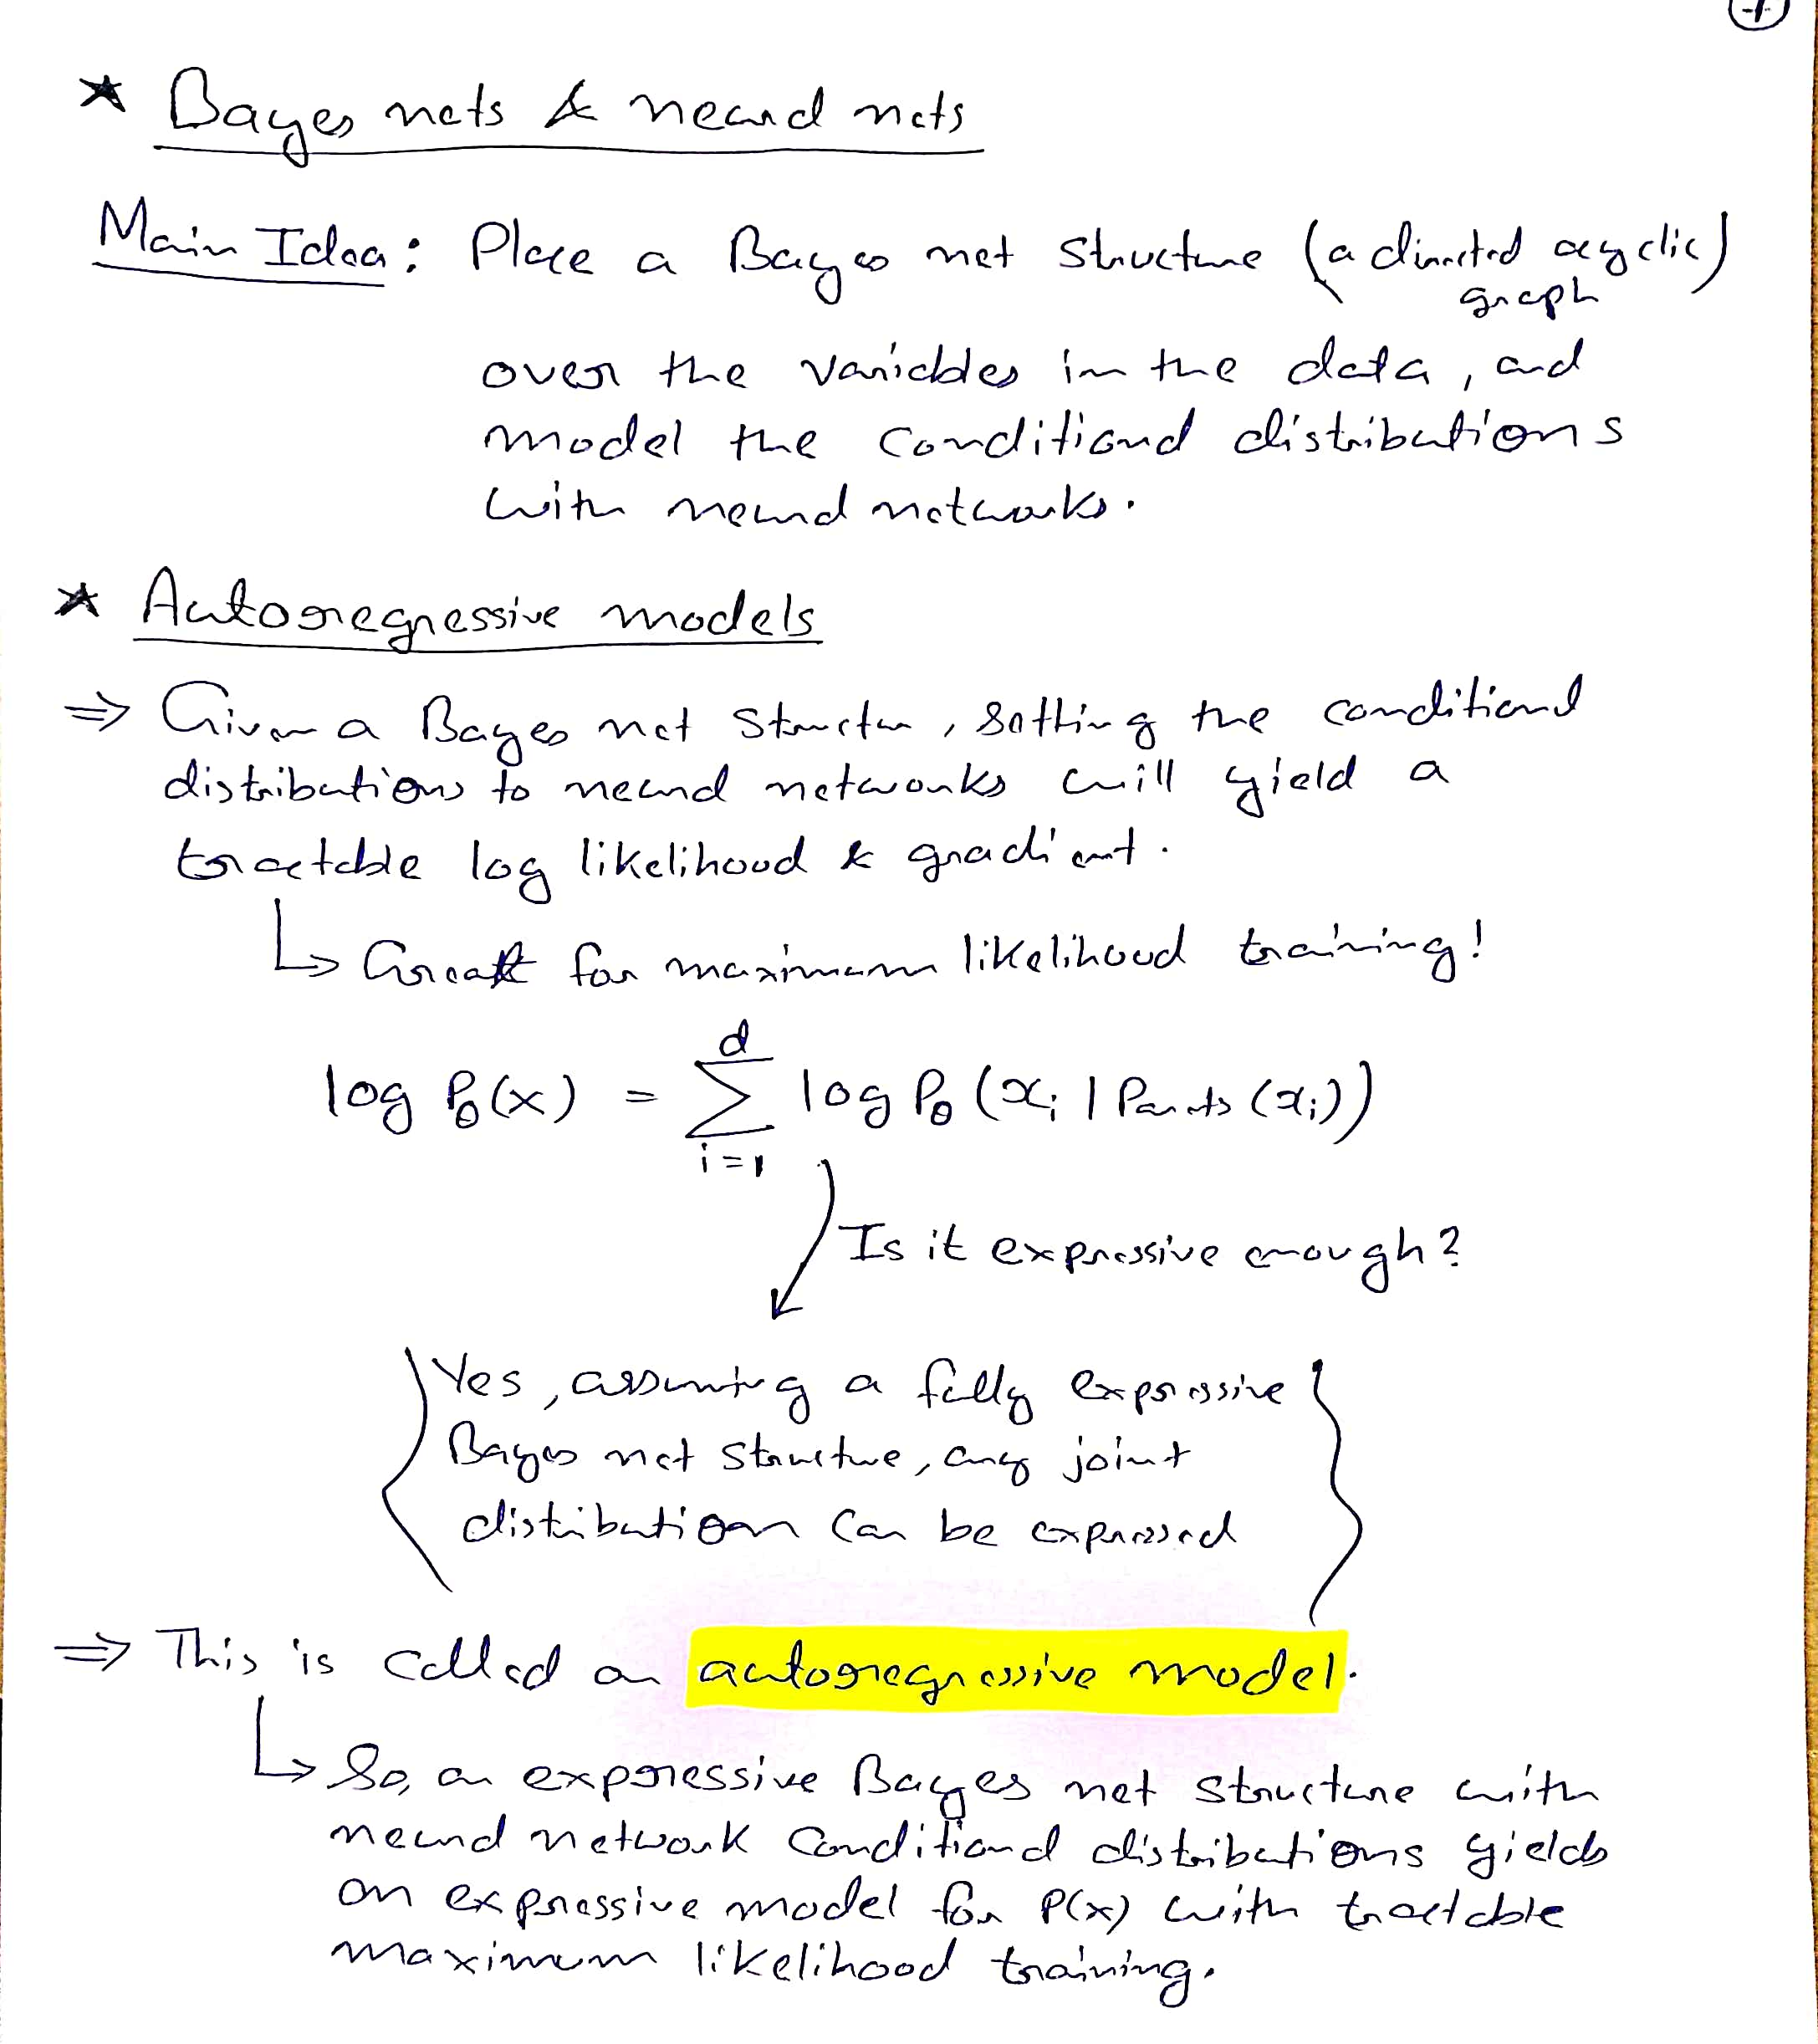 * Bayes nets & neural nets
Main Idea: Place a Bayes net structure (a directed acyclic graph)
over the variables in the data, and
model the conditional distributions
with neural networks.
* Autoregressive models
⇒ Given a Bayes net structure, setting the conditional
distributions to neural networks will yield a
tractable log likelihood & gradient.
↳ Great for maximum likelihood training!
log Pθ(x) = Σ_{i=1}^{d} log Pθ(xi | Parents(xi))
Is it expressive enough?
Yes, assuming a fully expressive
Bayes net structure, any joint
distribution can be expressed
⇒ This is called an autoregressive model.
↳ So, an expressive Bayes net structure with
neural network conditional distributions yields
an expressive model for P(x) with tractable
maximum likelihood training.